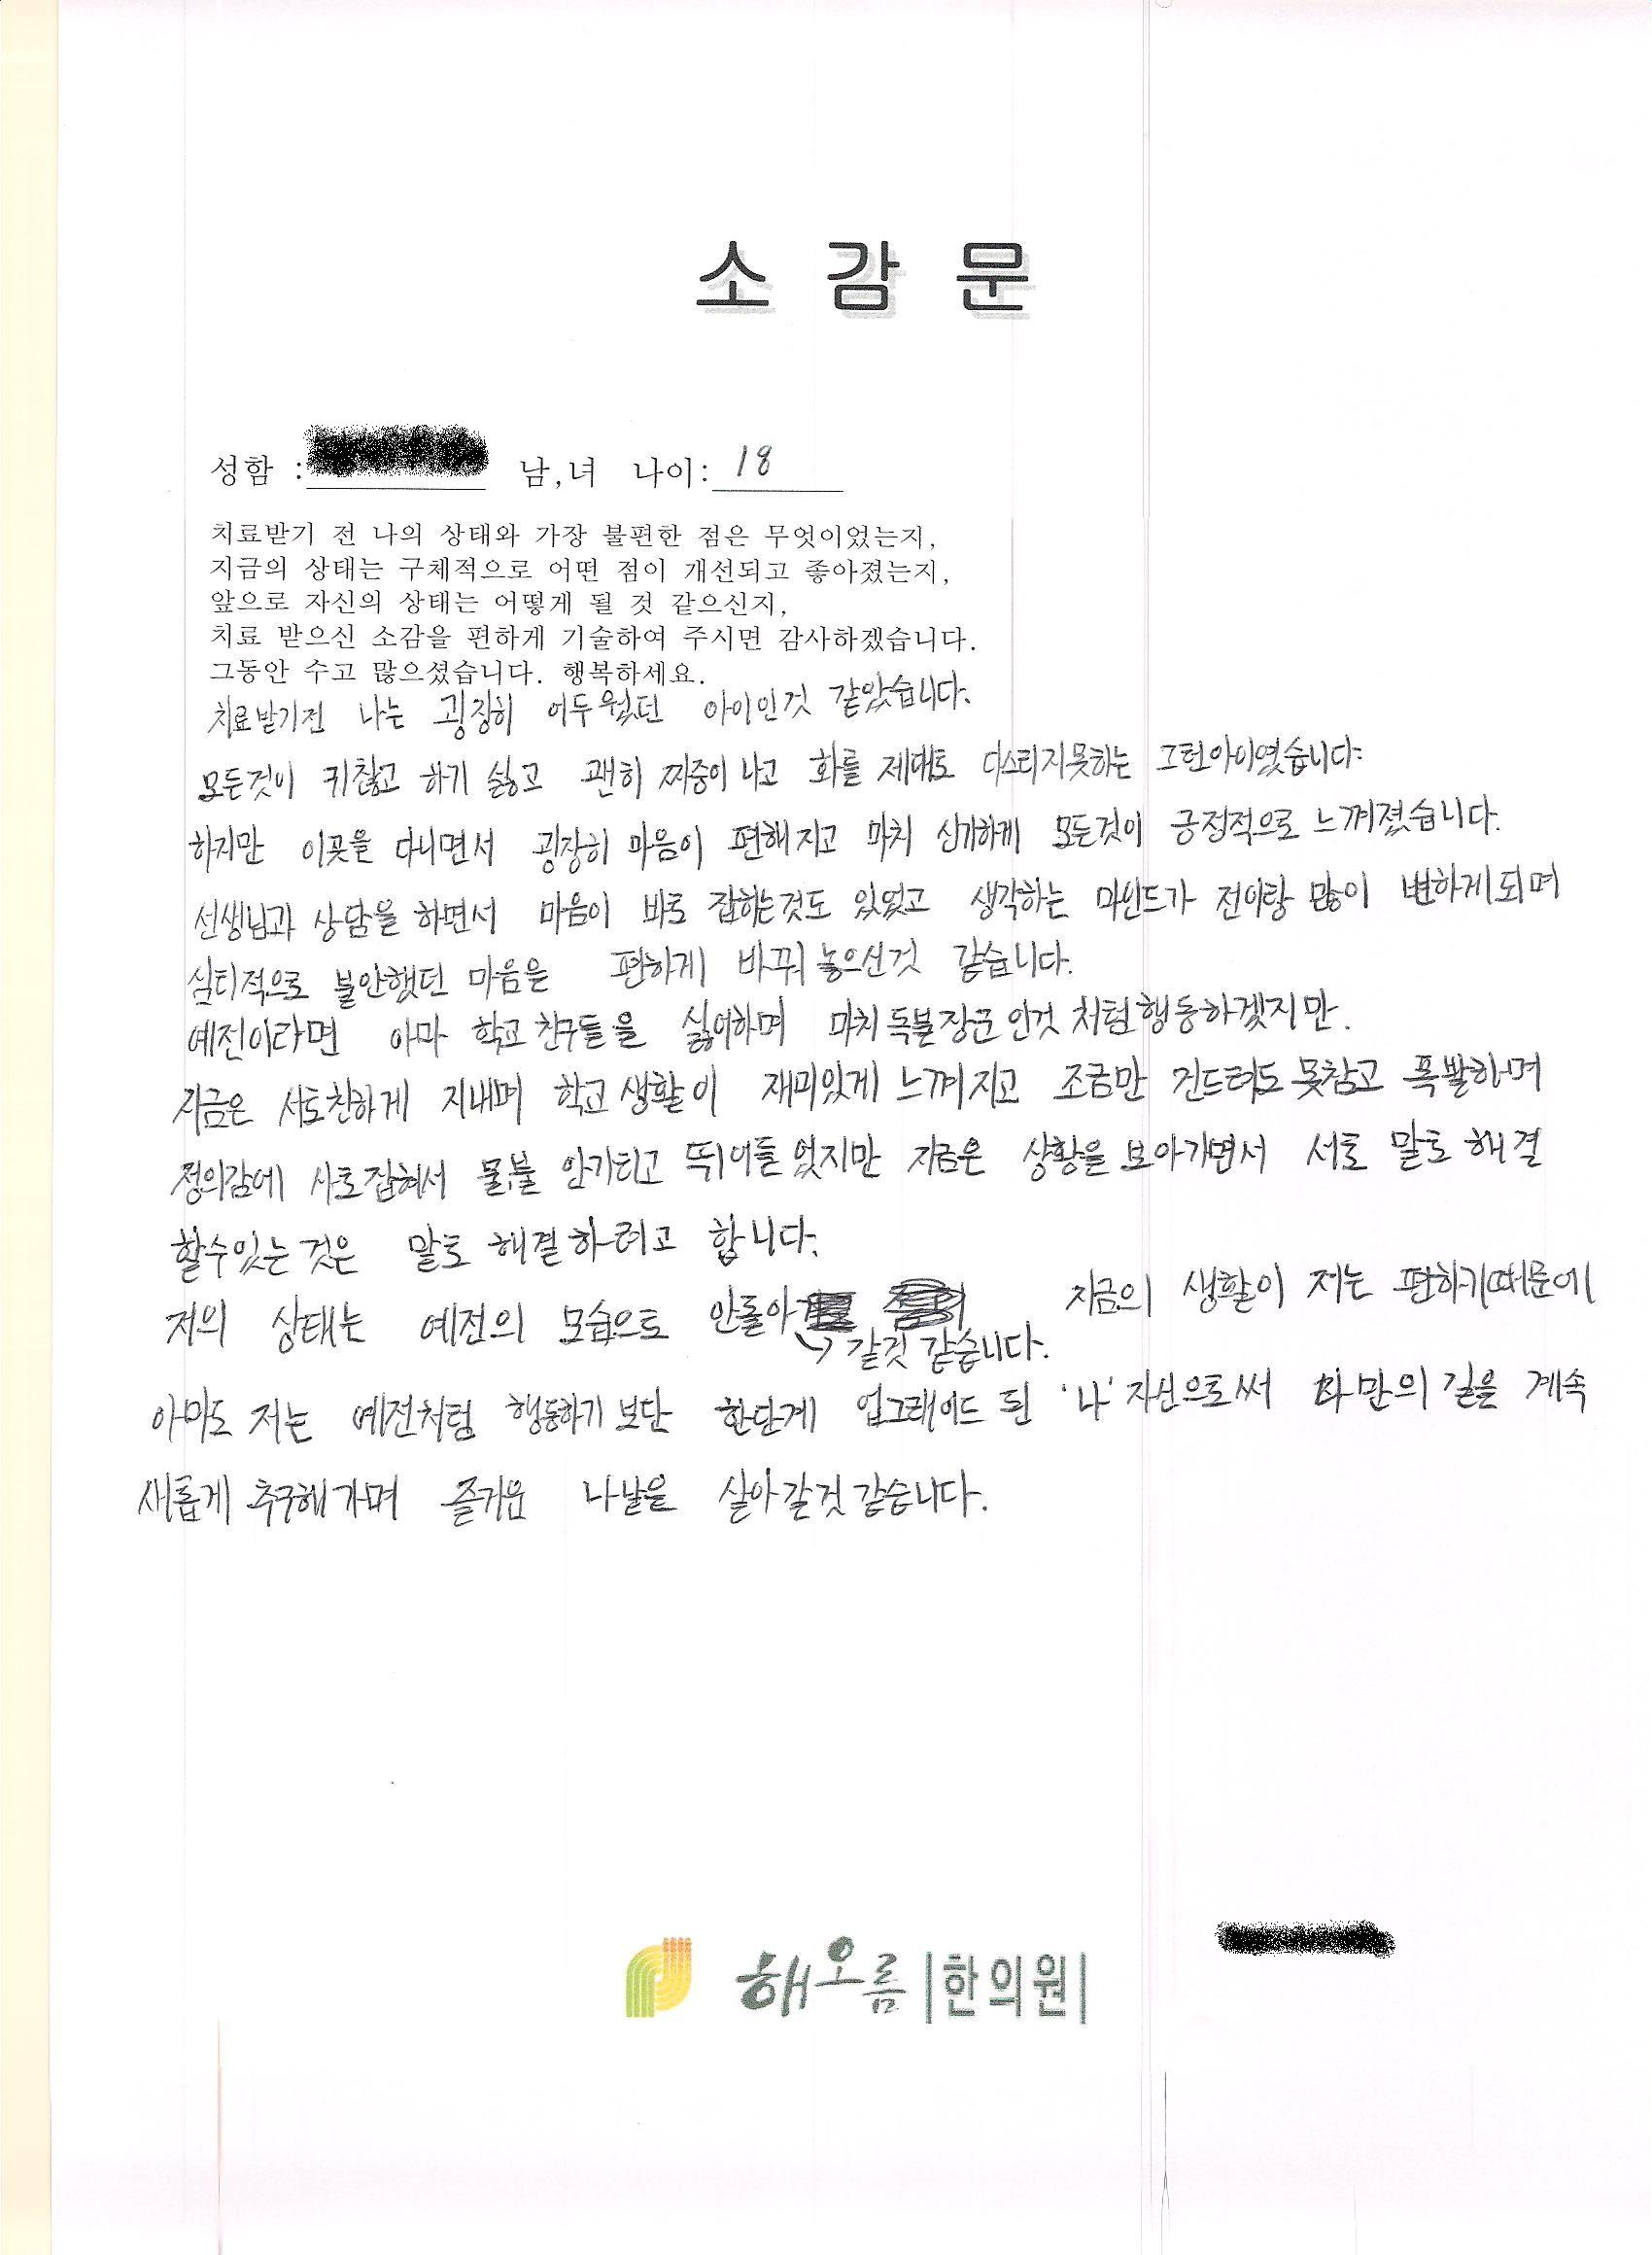 소 감 문
성함 : 남,녀 나이: 18
치료받기 전 나의 상태와 가장 불편한 점은 무엇이었는지,
지금의 상태는 구체적으로 어떤 점이 개선되고 좋아졌는지,
앞으로 자신의 상태는 어떻게 될 것 같으신지,
치료 받으신 소감을 편하게 기술하여 주시면 감사하겠습니다.
그동안 수고 많으셨습니다. 행복하세요.
치료받기전 나는 굉장히 어두웠던 아이인것 같았습니다.
모든것이 귀찮고 하기 싫고 괜히 짜증이 나고 화를 제대로 다스리지못하는 그런아이였습니다.
하지만 이곳을 다니면서 굉장히 마음이 편해지고 마치 신기하게 모든것이 긍정적으로 느껴졌습니다.
선생님과 상담을 하면서 마음이 바로 잡히는것도 있었고 생각하는 마인드가 전이랑 많이 변하게되며
심리적으로 불안했던 마음을 편하게 바꿔 놓으신것 같습니다.
예전이라면 아마 학교 친구들을 싫어하며 마치 독불장군 인것 처럼 행동하겠지만.
지금은 서로친하게 지내며 학교 생활이 재미있게 느껴지고 조금만 건드려도 못참고 폭발하며
정의감에 사로잡혀서 물,불 안가리고 뛰어들었지만 지금은 상황을 보아가면서 서로 말로 해결
할수있는 것은 말로 해결하려고 합니다.
저의 상태는 예전의 모습으로 안돌아 지금의 생활이 저는 편하기때문에
갈것 같습니다.
아마도 저는 예전처럼 행동하기 보단 한단계 업그레이드 된 '나' 자신으로써 나만의 길을 계속
새롭게 추구해가며 즐거운 나날을 살아갈것 같습니다.
해오름 |한의원|